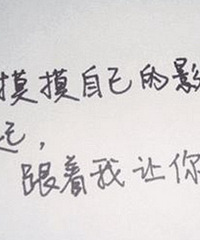 摸摸自己的影
跟着我让你